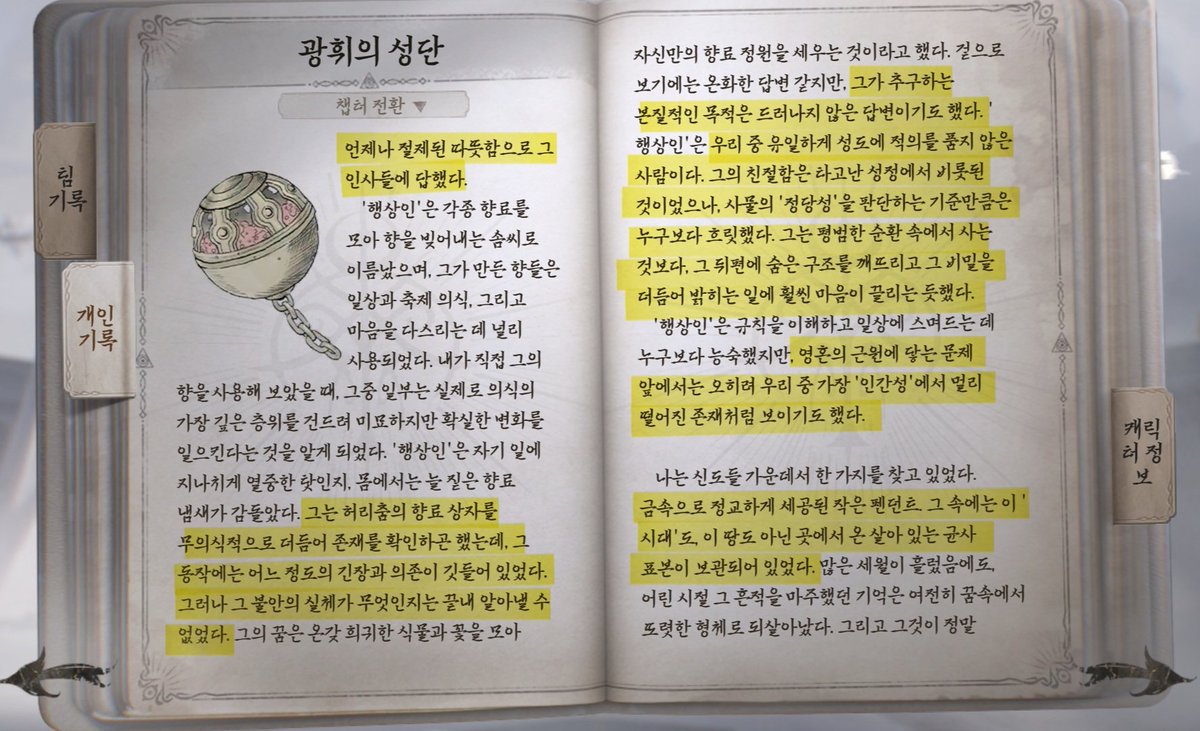 광휘의 성단
챕터 전환
팀
기록
개인
기록
언제나 절제된 따뜻함으로 그
인사들에 답했다.
'행상인'은 각종 향료를
모아 향을 빚어내는 솜씨로
이름났으며, 그가 만든 향들은
일상과 축제 의식, 그리고
마음을 다스리는 데 널리
사용되었다. 내가 직접 그의
향을 사용해 보았을 때, 그중 일부는 실제로 의식의
가장 깊은 층위를 건드려 미묘하지만 확실한 변화를
일으킨다는 것을 알게 되었다. '행상인'은 자기 일에
지나치게 열중한 탓인지, 몸에서는 늘 짙은 향료
냄새가 감돌았다. 그는 허리춤의 향료 상자를
무의식적으로 더듬어 존재를 확인하곤 했는데, 그
동작에는 어느 정도의 긴장과 의존이 깃들어 있었다.
그러나 그 불안의 실체가 무엇인지는 끝내 알아낼 수
없었다. 그의 꿈은 온갖 희귀한 식물과 꽃을 모아
자신만의 향료 정원을 세우는 것이라고 했다. 겉으로
보기에는 온화한 답변 같지만, 그가 추구하는
본질적인 목적은 드러나지 않은 답변이기도 했다. '
행상인'은 우리 중 유일하게 성도에 적의를 품지 않은
사람이다. 그의 친절함은 타고난 성정에서 비롯된
것이었으나, 사물의 '정당성'을 판단하는 기준만큼은
누구보다 흐릿했다. 그는 평범한 순환 속에서 사는
것보다, 그 뒤편에 숨은 구조를 깨뜨리고 그 비밀을
더듬어 밝히는 일에 훨씬 마음이 끌리는 듯했다.
'행상인'은 규칙을 이해하고 일상에 스며드는 데
누구보다 능숙했지만, 영혼의 근원에 닿는 문제
앞에서는 오히려 우리 중 가장 '인간성'에서 멀리
떨어진 존재처럼 보이기도 했다.
나는 신도들 가운데서 한 가지를 찾고 있었다.
금속으로 정교하게 세공된 작은 펜던트. 그 속에는 이 '
시대'도, 이 땅도 아닌 곳에서 온 살아 있는 균사
표본이 보관되어 있었다. 많은 세월이 흘렀음에도,
어린 시절 그 흔적을 마주했던 기억은 여전히 꿈속에서
또렷한 형체로 되살아났다. 그리고 그것이 정말
캐릭
터 정
보